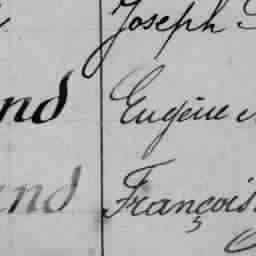 Joseph
nd Eugène
and François